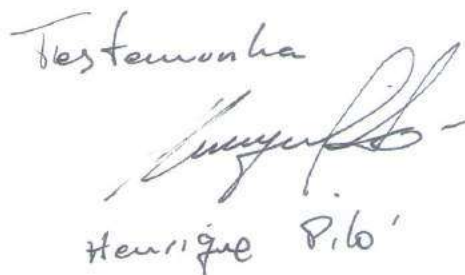 Testemunha
Henrique Piló